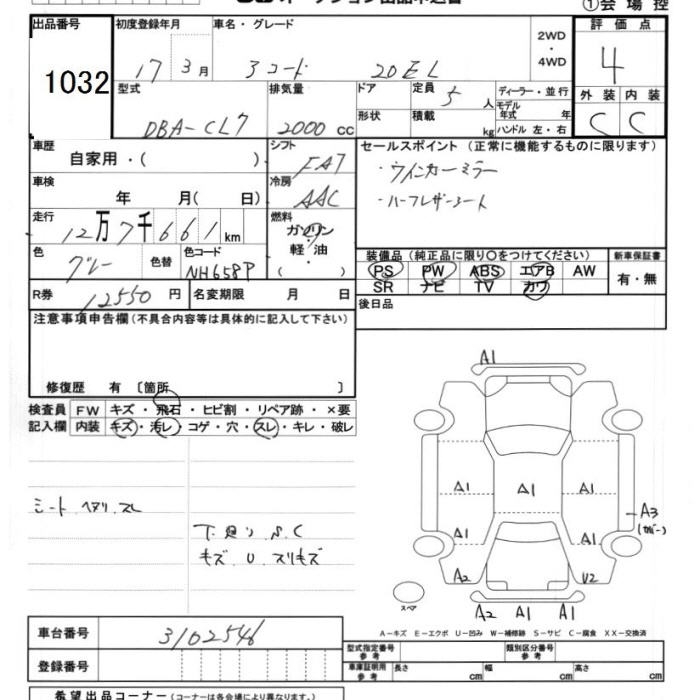 ①会場控
出品番号 初度登録年月 車名・グレード 2WD・4WD 評価点
1032 17 3月 アコード 20EL 4
型式 排気量 ドア 定員 5人 ディーラー・並行 外装 内装
DBA-CL7 2000 cc 形状 積載 kg モデル年式 年 ハンドル 左・右 C C
車歴 自家用・( ) シフト FAT セールスポイント (正常に機能するものに限ります)
車検 年 月( 日) 冷房 AAC ・ウインカーミラー
・ハーフレザーシート
走行 12万7千661km 燃料 ガソリン・軽油 ( )
色 グレー 色替 色コード NH658P
装備品(純正品に限り○をつけてください) 新車保証書
PS PW ABS エアB AW 有・無
SR ナビ TV カワ
R券 12550円 名変期限 月 日 後日品
注意事項申告欄(不具合内容等は具体的に記入して下さい)
修復歴 有 〔箇所 〕
検査員記入欄 FW キズ・飛石・ヒビ割・リペア跡・×要
内装 キズ・汚レ・コゲ・穴・スレ・キレ・破レ
シート ヘタリ、スレ
下廻り S、C
キズ U スリキズ
A1
A1 A1 A1
A3
(カバー)
A1 A1
A2 U2
スペア
A2 A1 A1
A-キズ E-エクボ U-凹み W-補修跡 S-サビ C-腐食 XX-交換済
車台番号 3102546
型式指定番号 参考 類別区分番号 参考
登録番号
車庫証明用 参考 長さ cm 幅 cm 高さ cm
希望出品コーナー(コーナーは各会場により異なります。)